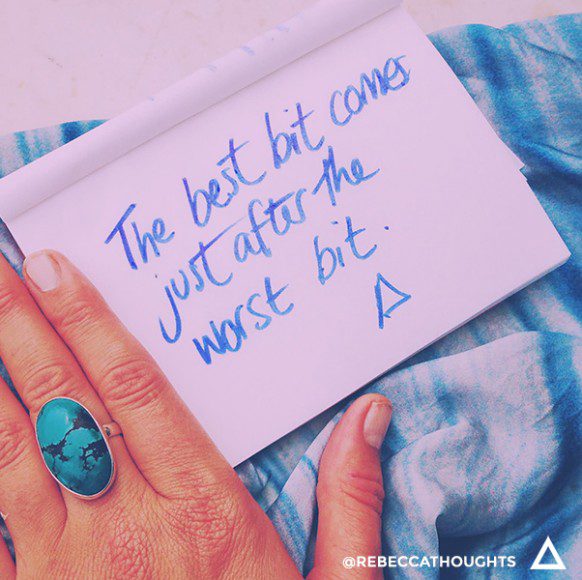 The best bit comes
just after the
worst bit.
@REBECCATHOUGHTS